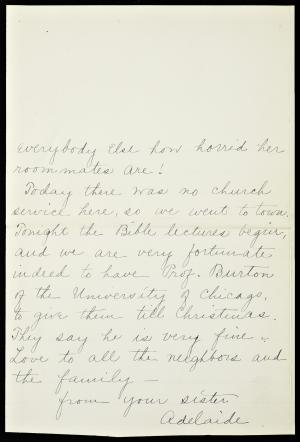 everybody else how horrid her
roommates are!
Today there was no church
service here, so we went to town.
Tonight the Bible lectures begin,
and we are very fortunate
indeed to have Prof. Burton
of the University of Chicago,
to give them till Christmas.
They say he is very fine.
Love to all the neighbors and
the family —
from your sister
Adelaide